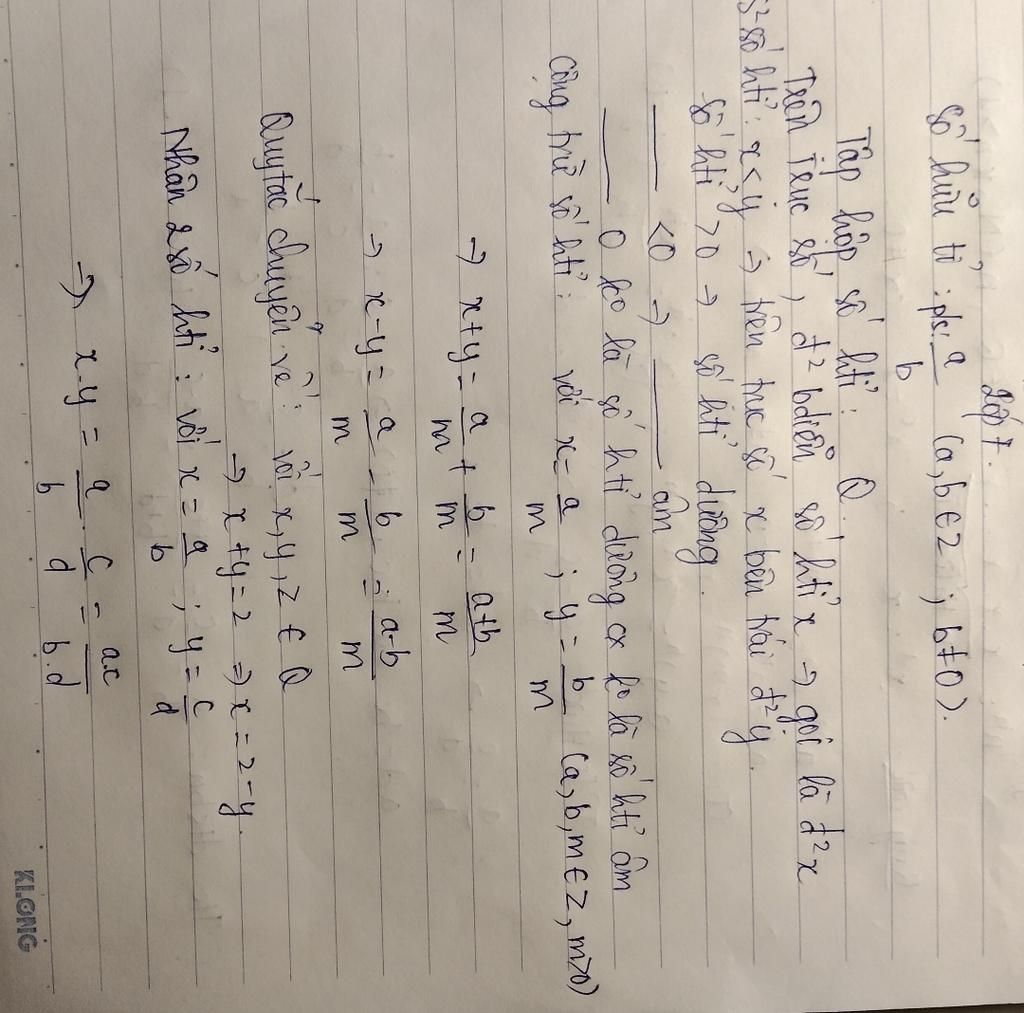 Lớp 7.
Số hữu tỉ : ps: a/b (a, b ∈ Z ; b ≠ 0).
Tập hợp số htỉ : Q.
Trên trục số, đ² bdiễn số htỉ x → gọi là đ² x
S² số htỉ : x < y → trên trục số x bên trái đ² y.
số htỉ > 0 → số htỉ dương.
___ < 0 → ___ âm
___ 0 ko là số htỉ dương cx ko là số htỉ âm
Cộng trừ số htỉ : với x = a/m ; y = b/m (a, b, m ∈ Z, m > 0)
→ x + y = a/m + b/m = a+b/m
→ x - y = a/m - b/m = a-b/m
Quy tắc chuyển vế : với x, y, z ∈ Q
→ x + y = z → x = z - y.
Nhân 2 số htỉ : với x = a/b ; y = c/d
→ x.y = a/b . c/d = a.c/b.d
KLONG